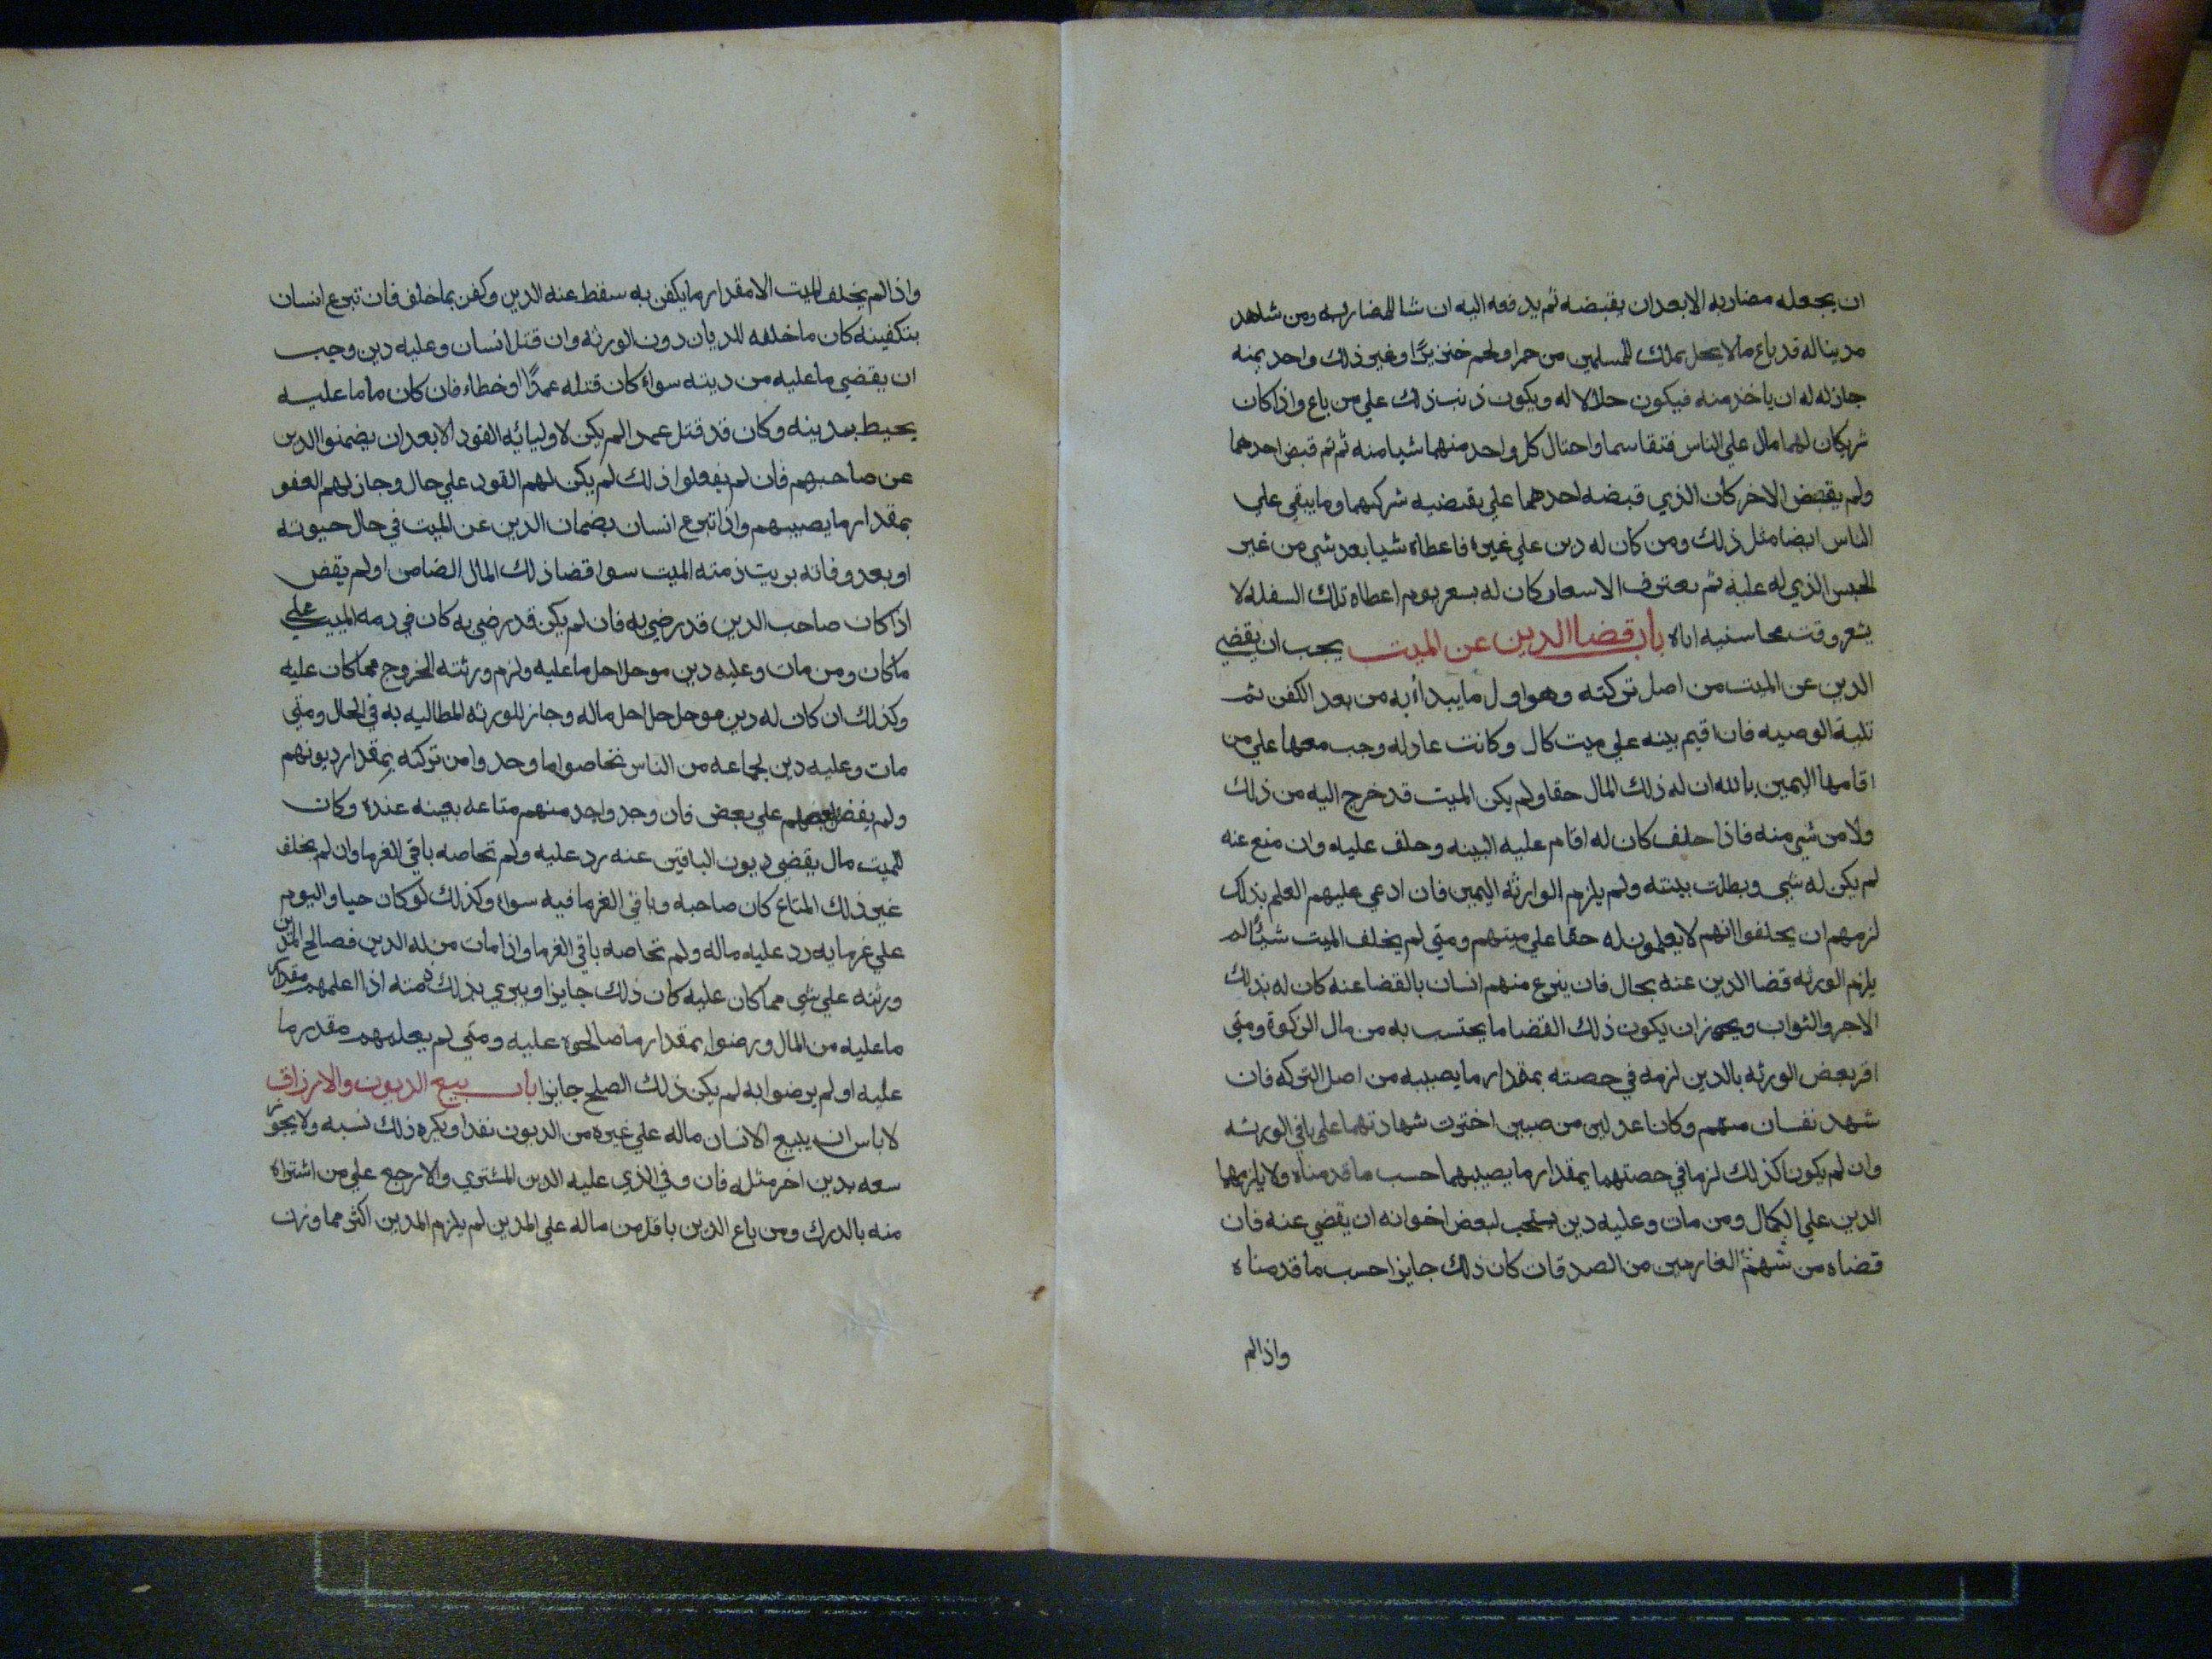 ان يجعله مضاربه الا بعد ان يقبضه ثم يدفعه اليه ان شا للمضاربه ومن شاهد
مدينا له قد باع ما لا يحل تملك للمسلمين من خمر او لحم خنزيرًا وغير ذلك واخد بمنه
جاز له له ان ياخذ منه فيكون حلالا له ويكون ذنب ذلك علي من باع واذا كان
شريكان لهما مال علي الناس فتقاسما واحتال كل واحد منهما شيا منه ثم ثم قبض احدهما
ولم يقبض الاخر كان الذي قبضه احدهما علي يقتضيه شركتهما وما يبقي علي
الناس ايضا مثل ذلك ومن كان له دين علي غيره فاعطاه شيا بعد شي من غير
الجبس الذي له عليه ثم تعترف الاسعار كان له بسعر يوم اعطاه تلك السفله لا
يشعر وقت محاسنيه اياه باب قضا الدين عن الميت يجب ان يقضي
الدين عن الميت من اصل تركته وهو اول ما يبداء به من بعد الكفن ثم
تلية الوصيه فان اقيم بينه علي ميت كال وكانت عادله وجب معها علي من
اقامها اليمين بالله ان له ذلك المال حقا ولم يكن الميت قد خرج اليه من ذلك
ولا من شي منه فاذا حلف كان له اقام عليه البينه وحلف عليه وان منع عنه
لم يكن له شي وبطلت بينته ولم يلزم الوارثه اليمين فان ادعي عليهم العلم بذلك
لزمهم ان يحلفوا انهم لا يعلمون له حقا علي ميتهم ومتي لم يخلف الميت شيًا لم
يلزم الورثه قضا الدين عنه بحال فان يبرع منهم انسان بالقضا عنه كان له بذلك
الاجر والثواب ويجوز ان يكون ذلك القضا ما يحتسب به من مال الزكوة ومتي
اقر بعض الورثه بالدين لزمه في حصته بمقدار ما يصيبه من اصل التركه فان
شهد نفسان منهم وكانا عدلين من صبيين اختزت شهادتهما علي باقي الورثه
وان لم يكونا كذلك لزما في حصتهما بمقدار ما يصيبهما حسب ما قدمناه ولا يلزمهما
الدين علي الكمال ومن مات وعليه دين يستحب لبعض اخوانه ان يقضي عنه فان
قضاه من شهم الغارمين من الصدقات كان ذلك جايزا حسب ما قدمناه
واذا لم
واذا لم يخلف الميت الا مقدار ما يكفن به سقط عنه الدين وكفن بما خلف فان تبرع انسان
بتكفينه كان ما خلفه للديان دون الورثه وان قتل انسان وعليه دين وجب
ان يقضي ما عليه من ديته سواء كان قتله عمدًا او خطاء فان كان ما ما عليه
يحيط بدينه وكان قد قتل عمدا لم يكن لاوليائه القود الا بعد ان يضمنوا الدين
عن صاحبهم فان لم يفعلوا ذلك لم يكن لهم القود علي حال وجاز لهم العفو
بمقدار ما يصيبهم واذا تبرع انسان بضمان الدين عن الميت في حال حيوته
او بعد وفاته بريت ذمته الميت سوا قضا ذلك المال الضامن او لم يقض
اذا كان صاحب الدين قد رضي به فان لم يكن قد رضي به كان في دمه الميت علي
ما كان ومن مات وعليه دين موحل احل ما عليه ولزم ورثته الخروج مما كان عليه
وكذلك ان كان له دين موجل حل احل ماله وجاز للورثه المطالبه به في الحال ومتي
مات وعليه دين لجماعه من الناس تخاصوا ما وجدوا من تركته بمقدار ديونهم
ولم يفضل بعضهم علي بعض فان وجد واحد منهم متاعه بعينه عنده وكان
للميت مال يقضي ديون الباقين عنه رد عليه ولم تحاصه باقي الغرما وان لم يخلف
غير ذلك المتاع كان صاحبه وباقي الغرما فيه سواء وكذلك لو كان حيا واليوم
علي غرمايه رد عليه ماله ولم تحاصه باقي الغرما واذا مات من له الدين فصالح المدين
ورثته علي شي مما كان عليه كان ذلك جايزا ويبري بذلك ذمته اذا اعلمهم مقدار
ما عليه من المال ورضوا بمقدار ما صالحوه عليه ومتي لم يعلمهم مقدر ما
عليه او لم يرضوا به لم يكن ذلك الصلح جايزا باب بيع الديون والارزاق
لا باس ان يبيع الانسان ماله علي غيره من الديون نقدا ويكره ذلك نسيه ولا يجوز
سعه بدين اخر مثله فان وفي الذي عليه الدين المشتري والا رجع علي من اشتراه
منه بالدرك ومن باع الدين باقل من ماله علي المدين لم يلزم المدين اكثر مما وزن